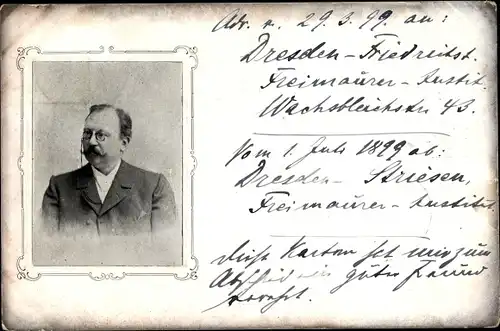 Adr. v. 29.3.99. an:
Dresden-Friedrichst.
Freimaurer-Instit.
Wachsbleichstr. 43.
Vom 1. Juli 1899 ab:
Dresden-Striesen,
Freimaurer-Institut
Diese Karten hat mir zum
Abschied ein guter Freund